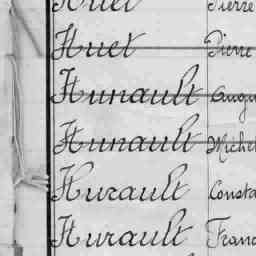 Huet Pierre
Huet Pierre
Hunault Augu
Hunault Michel
Hurault Consta
Hurault Franc